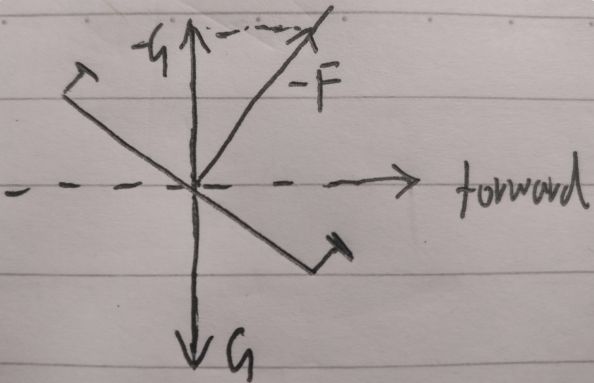 -G
-F
forward
G